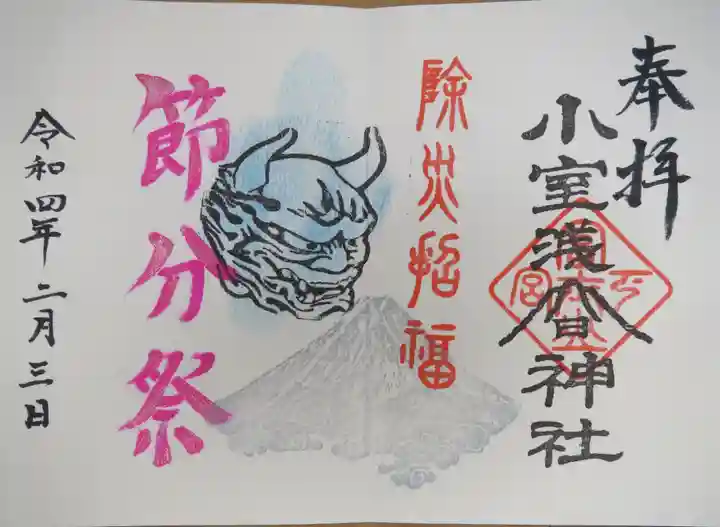 奉拝
小室浅間神社
除災招福
節分祭
令和四年二月三日